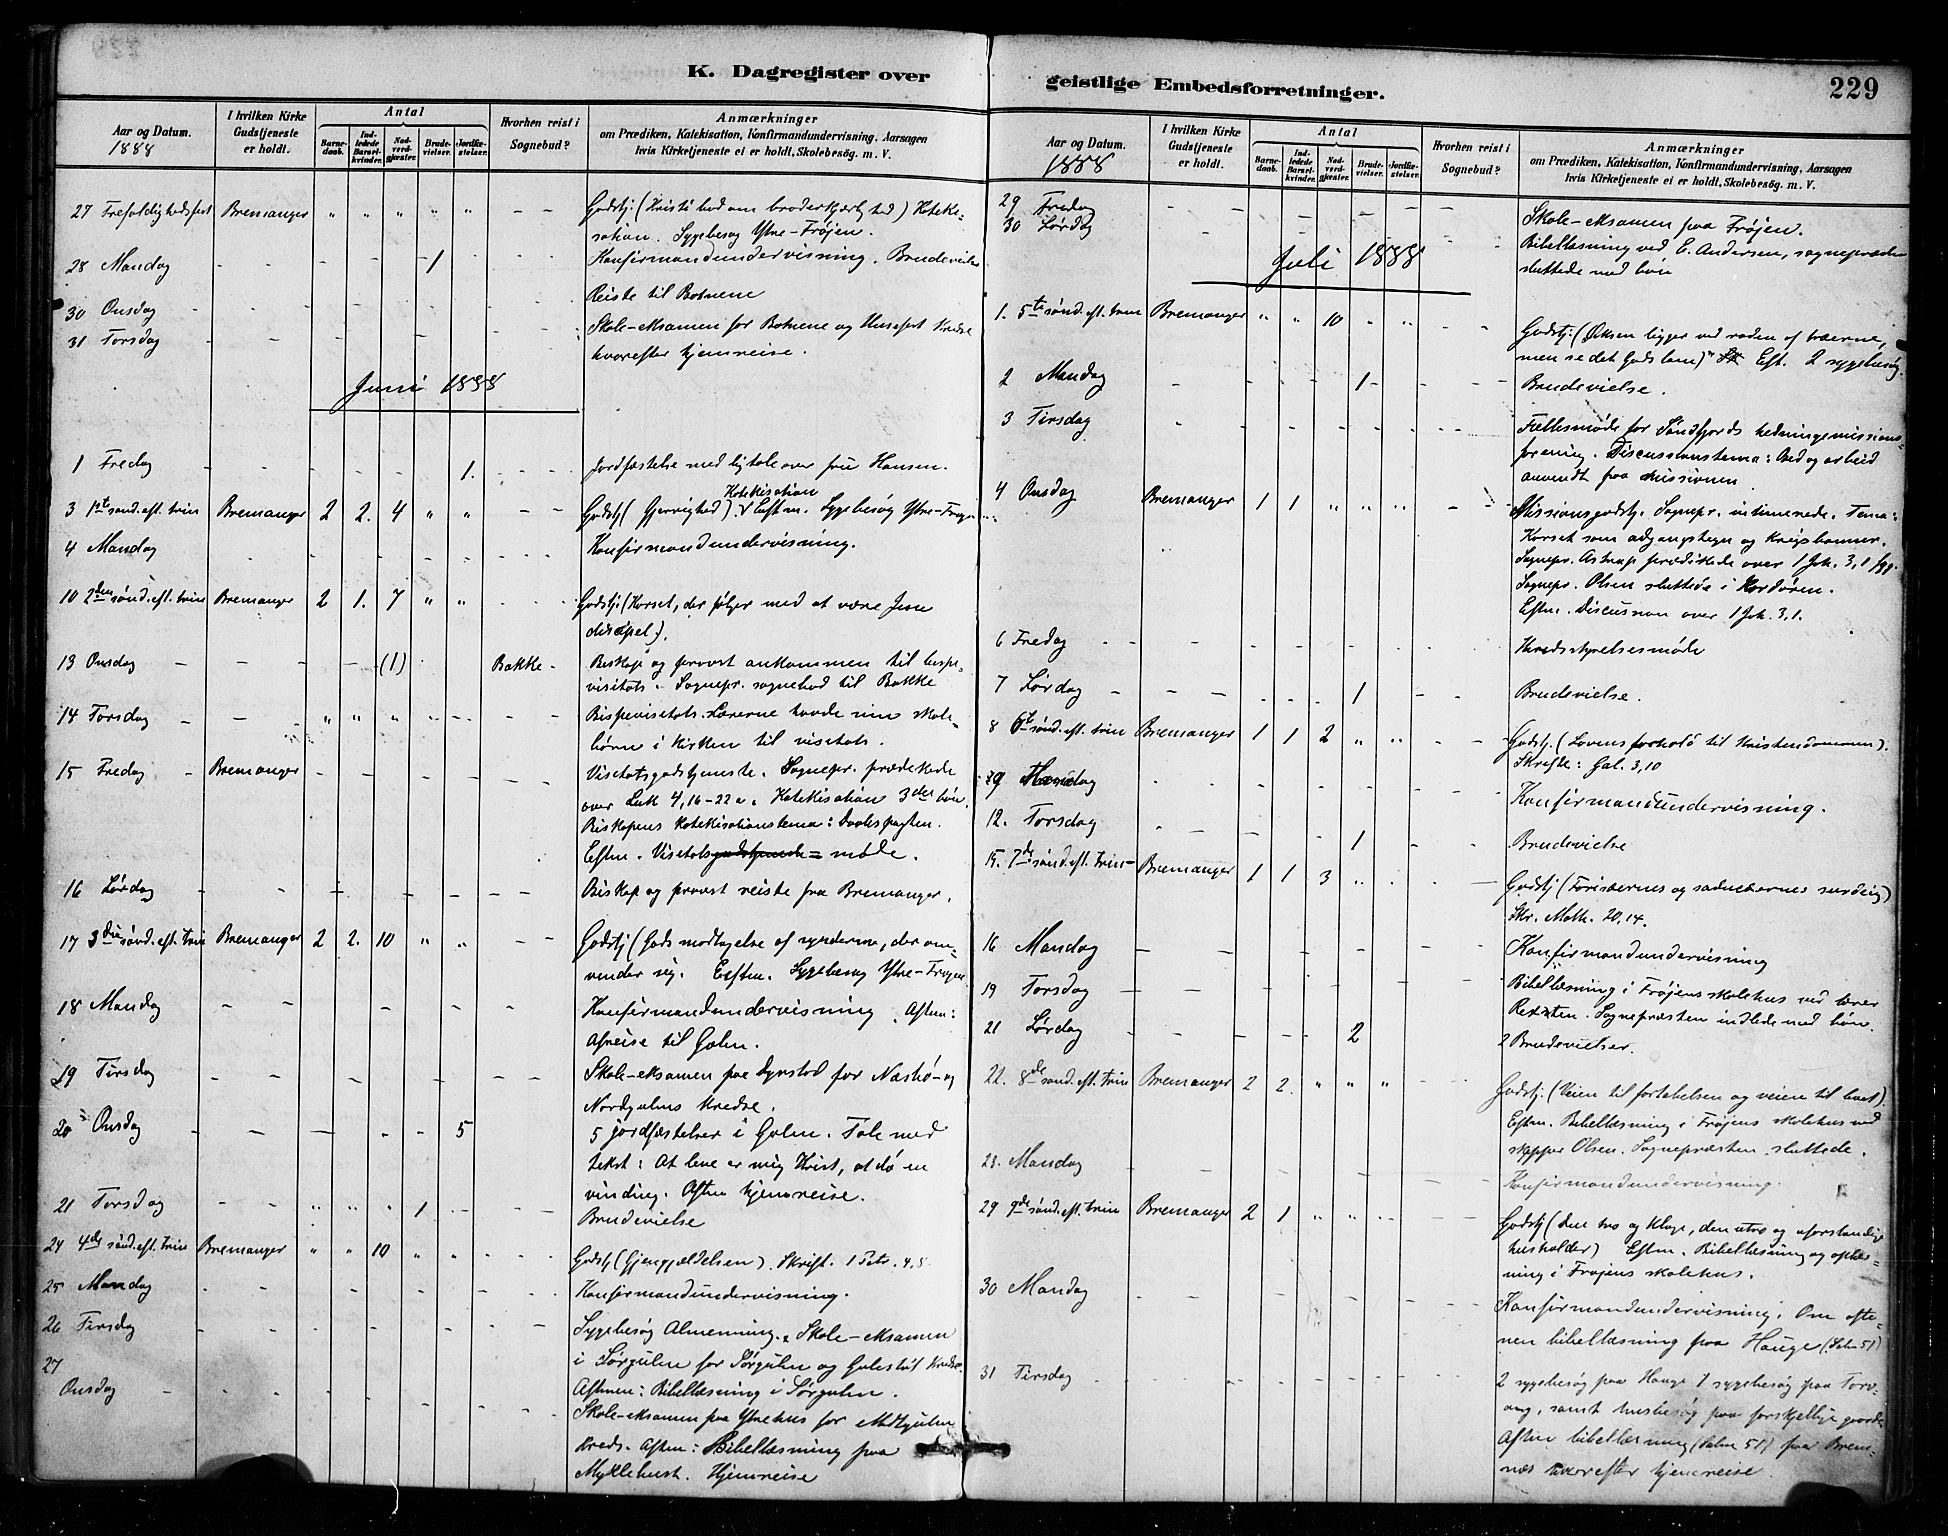 K. Dagregister over
Aar og Datum.
1888
I hvilken Kirke Gudstjeneste er holdt.
Antal
Barnedaab.
Indledede Barselkvinder.
Nadverdgjæster.
Brudevielser.
Jordfæstelser.
Hvorhen reist i Sognebud?
Anmærkninger
om Prædiken, Katekisation, Konfirmandundervisning, Aarsagen
hvis Kirketjeneste ei er holdt, Skolebesøg. m. V.
27 Trefoldighedsfest Bremanger " " " " " - - Gudstj. (Kristi bud om broderkjærlighed) Kateke-
sation. Sygebesøg Ytre-Frøjen.
28 Mandag - - - - - 1 - - Konfirmandundervisning. Brudevielse
Reiste til Botnene
30 Onsdag
31 Torsdag Skole-eksamen for Botnene og Husefest Kredse
hvorefter hjemreise.
Juni 1888
1 Fredag - - - - - - 1. - - Jordfæstelse med ligtale over fru Hansen.
3 1ste sønd. eft. trin Bremanger 2 2. 4 " " - - Gudstj. (Gjerrighed). Katekisation Eftm. Sygebesøg Ytre-Frøjen
4 Mandag Konfirmandundervisning.
10 2den sønd. eft. trin Bremanger 2 1. 7 " " - - Gudstj. (Korset, der følger med at være Jesu
discipel).
13 Onsdag - - - - (1) Bakke - Biskop og provst ankommen til bispe-
visitats. Sognepr. sognebud til Bakke
14 Torsdag - - " " " " - - - Bispevisitats. Lærerne havde sine skole-
børn i kirken til visitats.
15 Fredag - Bremanger - - - - - - - Visitatsgudstjeneste. Sognepr. prædikede
over Luk 4,16-22a. Katekisation 3die bøn.
Biskopens katekisationstema: Daabspagten.
Eftm. Visitatsgudstjeneste = møde.
16 Lørdag - - - - - - - - - Biskop og provst reiste fra Bremanger.
17 3die sønd. eft. trin Bremanger 2 2. 10 " " - - Gudstj. (Guds modtagelse af synderne, der om-
vender sig. Eftm. Sygebesøg Ytre-Frøjen
18 Mandag Konfirmandundervisning. Aftm:
Afreise til Gulen.
19 Tirsdag Skole-eksamen paa Dynstad for Næsbø- og
Nordgulens Kredse.
20 Onsdag - - - - - 5 5 jordfæstelser i Gulen. Tale med
tekst: At leve er mig Krist, at dø en
vinding. Aften hjemreise.
21 Torsdag - - " " " 1 - - - Brudevielse
24 4de sønd. eft. trin Bremanger " " 10 " " - - Gudstj. (Gjengjældelsen). Skrift. 1 Petr. 4,8
25 Mandag Konfirmandundervisning.
26 Tirsdag Sygebesøg Almenning. Skole-eksamen
i Sørgulen for Sørgulen og Gulestøt Kredse.
27
Onsdag Aftenen: Bibellæsning i Sørgulen.
Skole-eksamen paa Ytrehus for Midtgulen
Kreds. Aften: Bibellæsning paa
Myklebust. Hjemreise
geistlige Embedsforretninger.
229
Aar og Datum.
1888
I hvilken Kirke Gudstjeneste er holdt.
Antal
Barnedaab.
Indledede Barselkvinder.
Nadverdgjæster.
Brudevielser.
Jordfæstelser.
Hvorhen reist i Sognebud?
Anmærkninger
om Prædiken, Katekisation, Konfirmandundervisning, Aarsagen
hvis Kirketjeneste ei er holdt, Skolebesøg. m. V.
29 Fredag Skole-eksamen paa Frøjen.
30 Lørdag Bibellæsning ved E. Andersen, sognepræsten
sluttede med bøn
Juli 1888
1. 5te sønd. eft. trin Bremanger " " 10 " " - - Gudstj. (Øksen ligger ved roden af træerne,
men se det Guds lam) Eft. 2 sygebesøg.
2 Mandag - - - - - 1 - - - Brudevielse.
3 Tirsdag Fællesmøde for Søndfjords hedningemissions-
forening. Discussionstema: Bed og arbeid
anvendt paa missionen
4 Onsdag Bremanger 1 1 " " " - - Missionsgudstj. Sognepr. intimerede. Tema:
Korset som adgangstegn og krigsbanner.
Sognepr. Astrup prædikede over 1 Joh. 3,1 fgg.
Sognepr. Olsen sluttede i kordøren.
Eftm. Discussion over 1 Joh. 3,1.
6 Fredag Kredsstyrelsesmøde
7 Lørdag - - - - - 1 - - Brudevielse.
8 6te sønd. eft. trin Bremanger 1 1 2 " " - - Gudstj. (Lovens forhold til kristendommen).
Skrifte: Gal. 3,10
9 Mandag Konfirmandundervisning.
12. Torsdag - - - - - 1 - - Brudevielse
15. 7de sønd. eft. trin - Bremanger 1 1 3 " " - - Gudstj. (Farisæernes og saducæernes surdeig)
Skr. Math. 20,14.
16 Mandag Konfirmandundervisning
19 Torsdag Bibellæsning i Frøjens skolehus ved lærer
. Sognepræsten indlede med bøn.
21 Lørdag - - - - - 2 - - 2 Brudevielser.
22. 8de sønd. eft. trin Bremanger 2 2. " " " - - Gudstj. (Veien til fortabelsen og veien til livet).
Eftm. Bibellæsning i Frøjens skolehus ved
skipper Olsen. Sognepræsten sluttede.
23. Mandag Konfirmandundervisning.
29 9de sønd. eft. trin Bremanger 2 1 " " " - - Gudstj. (Den tro og kloge, den utro og uforstandige
husholder) Eftm. Bibellæsning og opbyg-
ning i Frøjens skolehus.
30 Mandag Konfirmandundervisning. Om afte-
nen bibellæsning paa Hauge (Salm 51)
31 Tirsdag 2 sygebesøg paa Hauge 1 sygebesøg paa Torv-
ang, samt husbesøg paa forskjellige gaarde
Aften bibellæsning (Salm 51) paa Brem-
næs hvorefter hjemreise.